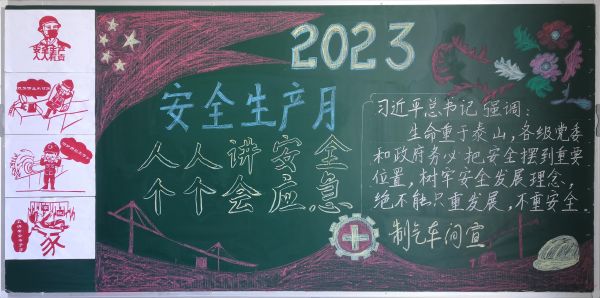 2023
安全生产月
人人讲安全
个个会应急
习近平总书记强调：
生命重于泰山，各级党委
和政府务必把安全摆到重要
位置，树牢安全发展理念，
绝不能只重发展，不重安全。
制气车间宣
安全生产
人人有责